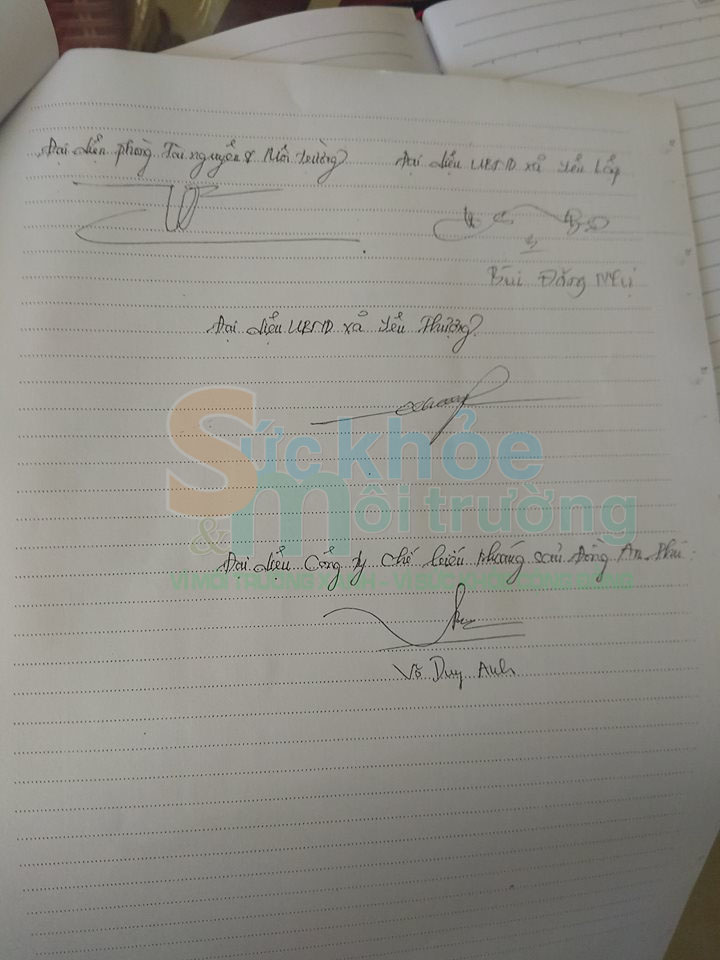 Đại diện phòng Tài nguyên & Môi trường
Đại diện UBND xã Yên Lập
Bùi Đăng
Đại diện UBND xã Yên Thượng
Sức khỏe
& môi trường
Đại diện Công ty chế biến khoáng sản Đồng An Phú
VÌ MÔI TRƯỜNG XANH - VÌ SỨC KHỎE CỘNG ĐỒNG
Võ Duy Anh